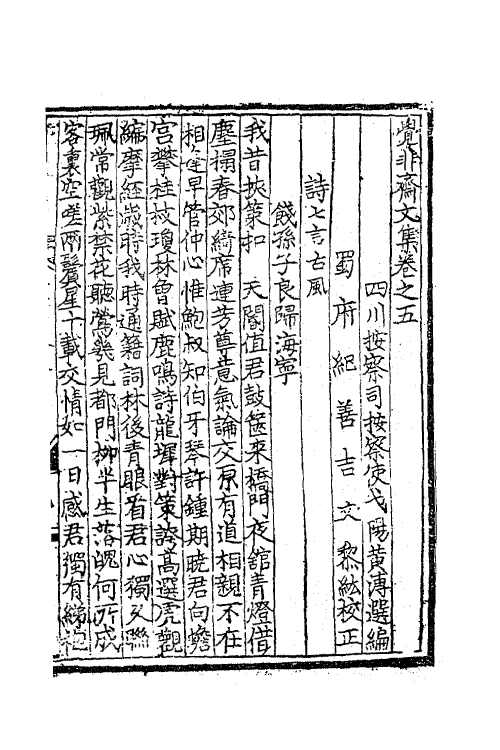 覺非齋文集卷之五
四川按察司按察使弋陽黃溥選編
蜀府紀善吉文黎紘校正
詩七言古風
餞孫子良歸海寧
我昔挾策扣　天閽值君鼓篋來橋門夜舘青燈借
塵榻春郊綺席連芳尊意氣論交原有道相親不在
相逢早管仲心惟鮑叔知伯牙琴許鍾期曉君向蟾
宮攀桂枝瓊林曾賦鹿鳴詩龍墀對策誇高選虎觀
編摩經歲時我時通籍詞林後青眼看君心獨久聯
珮常觀紫禁花聽鶯幾見都門柳半生落魄何所成
客裏空嗟兩鬢星十載交情如一日感君獨有綈袍